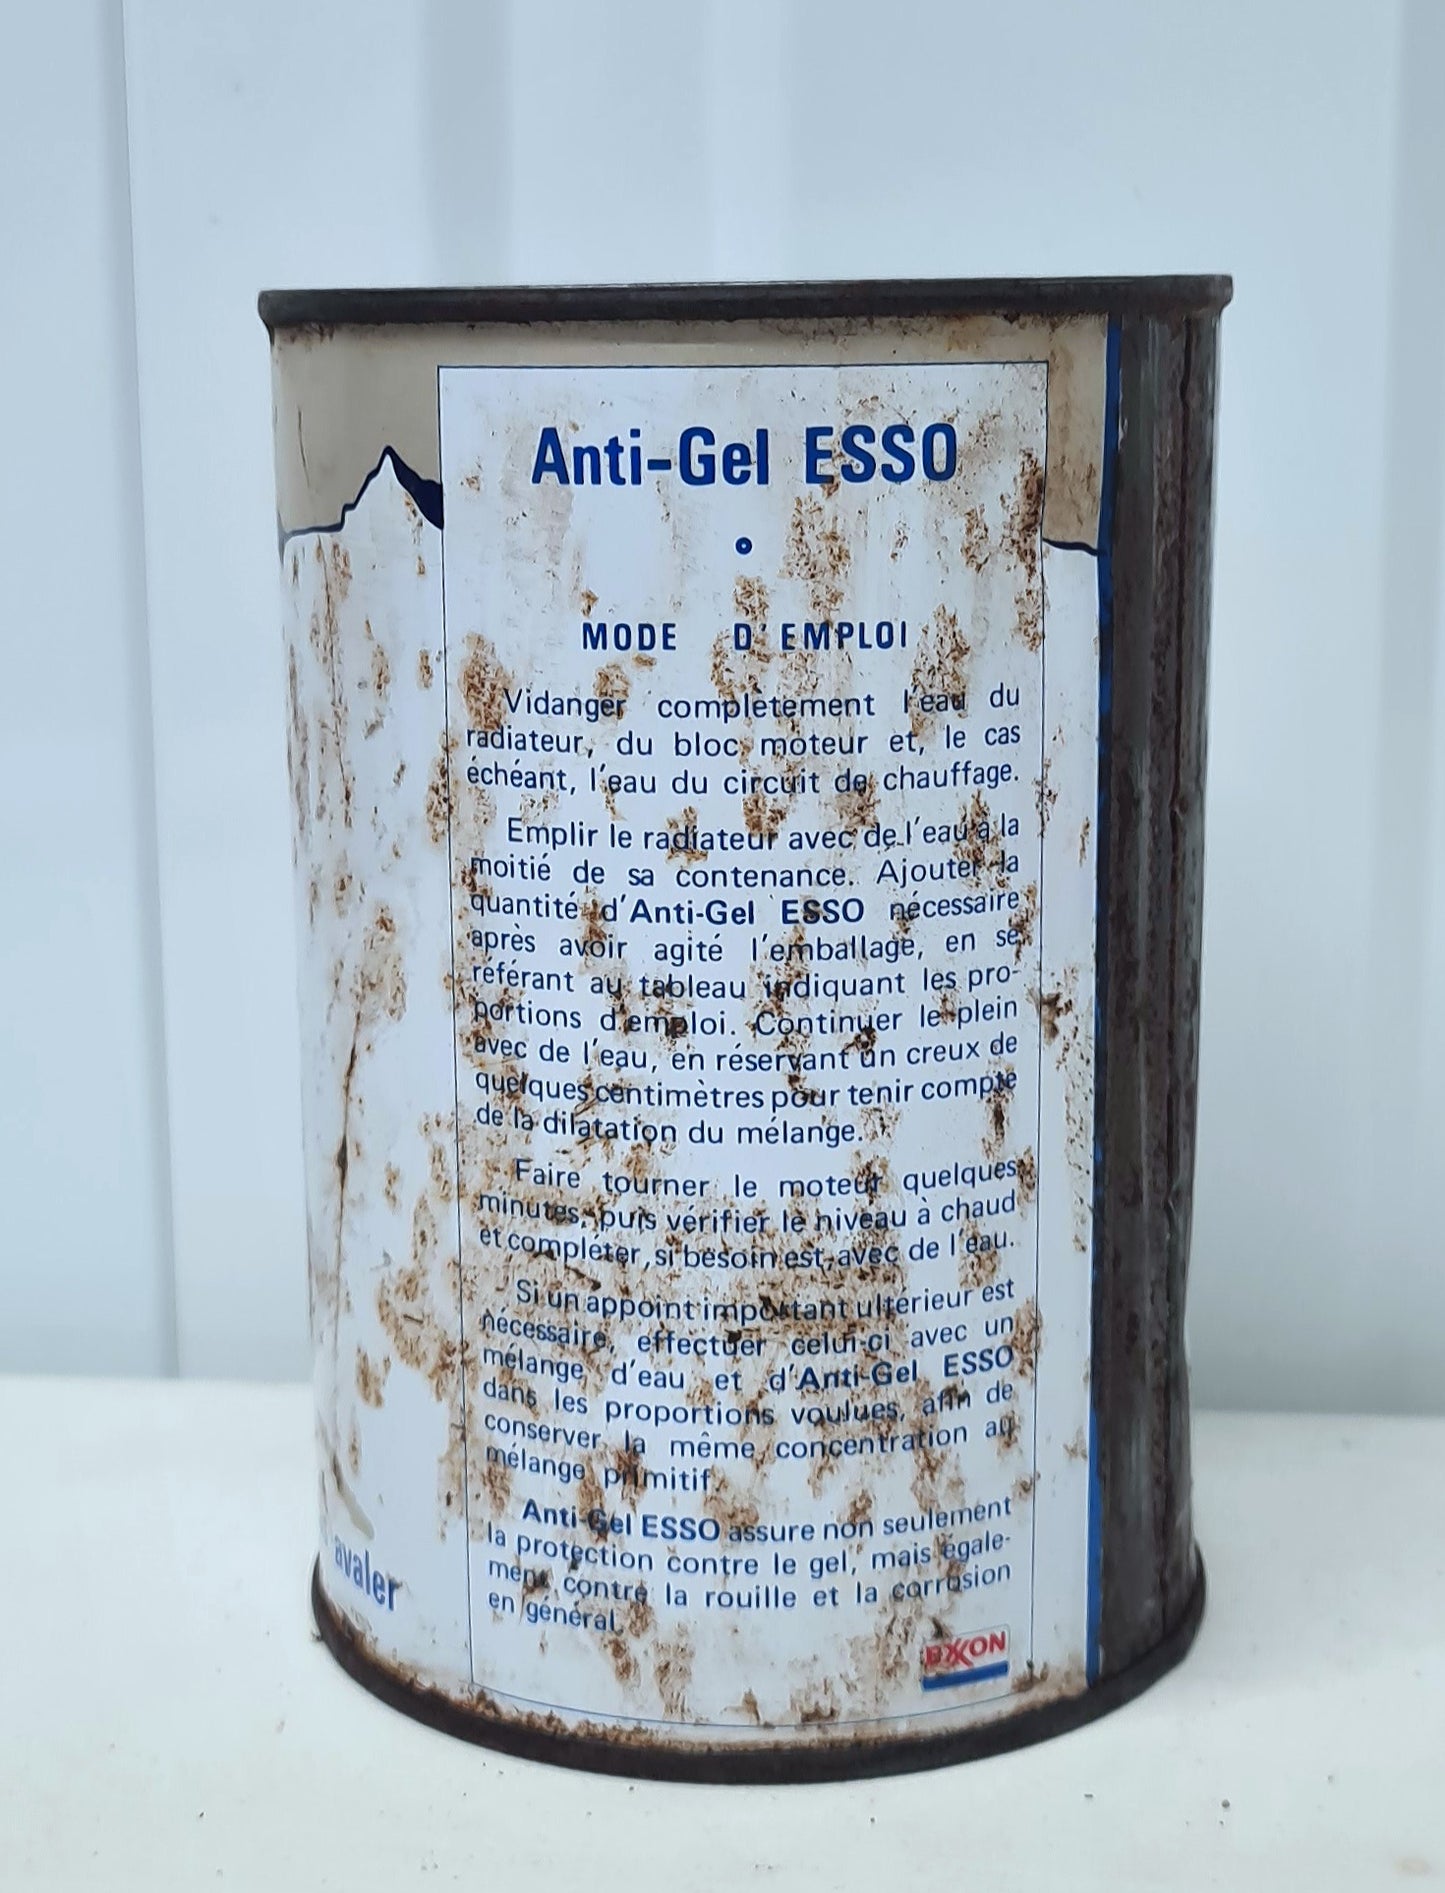 Anti-Gel ESSO
MODE D'EMPLOI
Vidanger complètement l'eau du
radiateur, du bloc moteur et, le cas
échéant, l'eau du circuit de chauffage.
Emplir le radiateur avec de l'eau à la
moitié de sa contenance. Ajouter la
quantité d'Anti-Gel ESSO nécessaire
après avoir agité l'emballage, en se
référant au tableau indiquant les pro-
portions d'emploi. Continuer le plein
avec de l'eau, en réservant un creux de
quelques centimètres pour tenir compte
de la dilatation du mélange.
Faire tourner le moteur quelques
minutes, puis vérifier le niveau à chaud
et compléter, si besoin est, avec de l'eau.
Si un appoint important ultérieur est
nécessaire, effectuer celui-ci avec un
mélange d'eau et d'Anti-Gel ESSO
dans les proportions voulues, afin de
conserver la même concentration au
mélange primitif.
Anti-Gel ESSO assure non seulement
la protection contre le gel, mais égale-
ment contre la rouille et la corrosion
en général.
avaler
EXXON